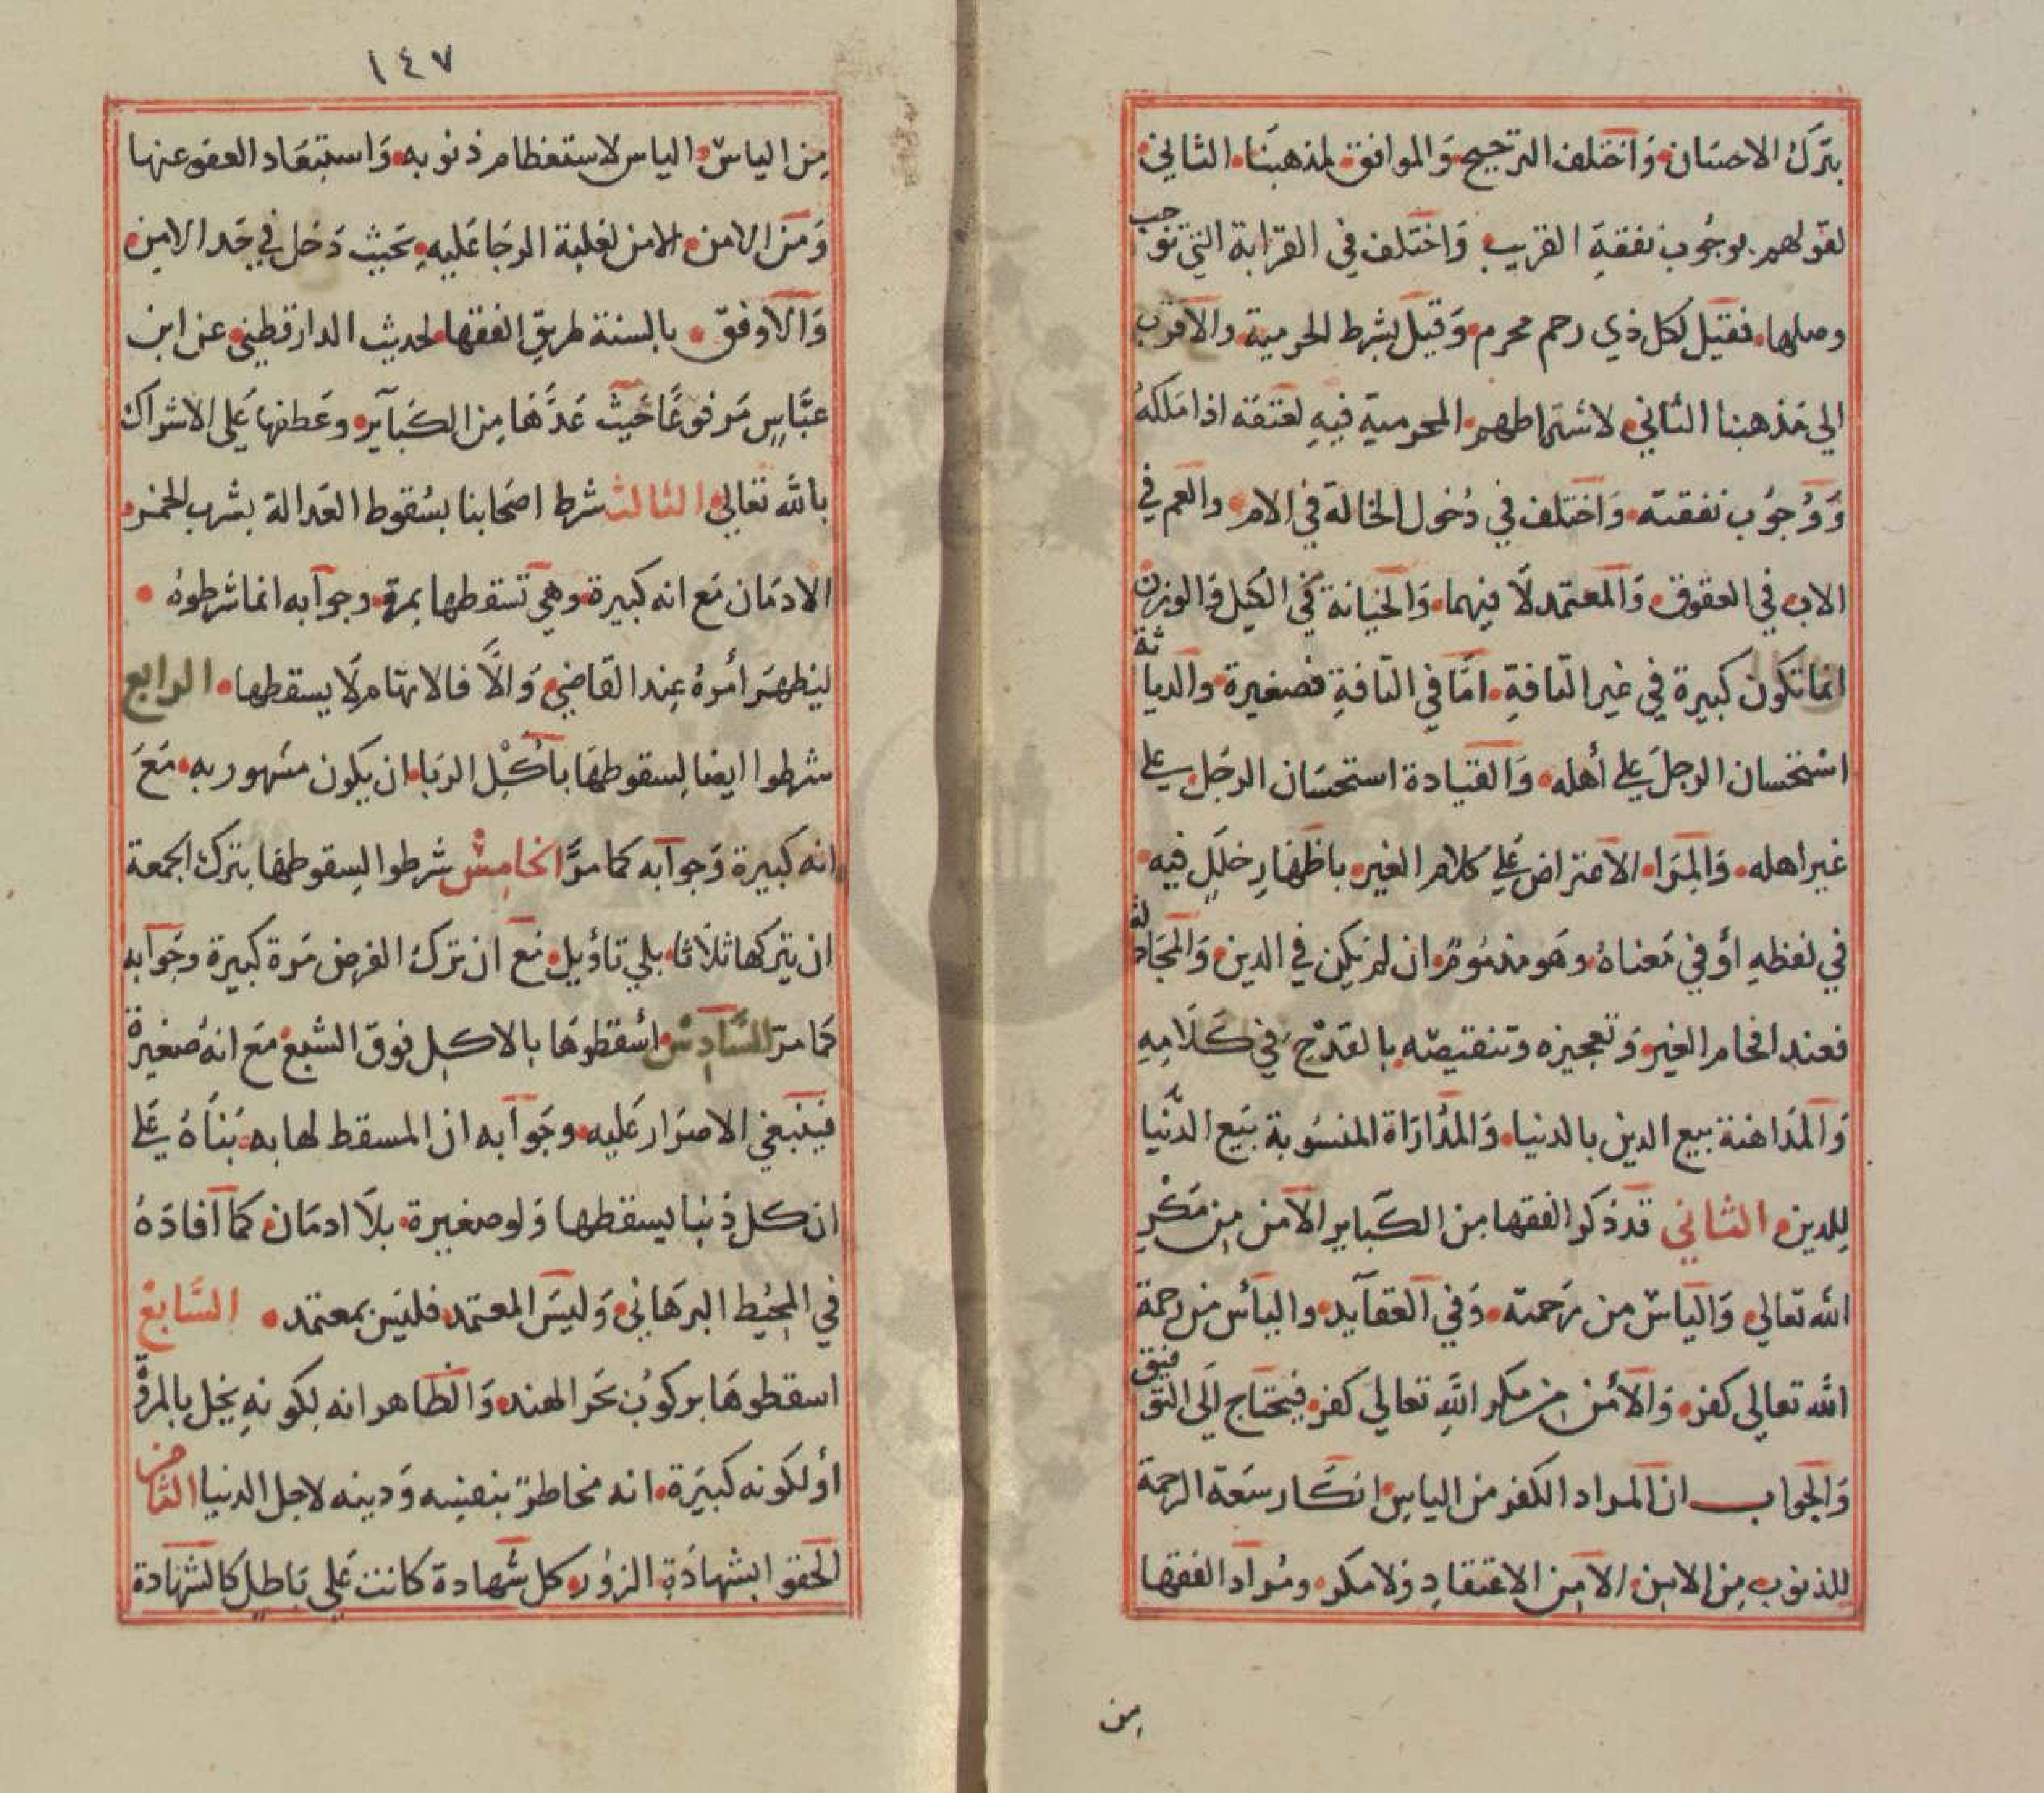 بترك الاحسان وَاختلف الترجيح وَالموافق لمذهبنا الثاني
لقولهم بوجُوب نفقةِ القريب وَاختلف في القرابة التي توجب
وصلها فقيل لكل ذي رحم محرم وَقيل بشرط الحرمية والاقرب
الي مَذهبنا الثاني لاشتراطهم المحرمية فيهِ لعتقه اذا مَلكهُ
وَوُجوُب نفقته وَاختلف في دُخول الخالة في الام والعم في
الاب في العقوق وَالمعتمد لَا فيهما وَالخيانة في الكيل وَالوزن
انما تكون كبيرة في غير التافةِ امَّا في التافةِ فصغيرة والدياثة
استحسان الرجل علي أهله وَالقيادة استحسَان الرجَل علي
غير اهله وَالمِرَا الاعتراض عَلي كلام الغير باظهَارِ خللٍ فيه
في لفظهِ أو في مَعناهُ وهَو مذمُومٌ ان لم يكن في الدين وَالمجَادلة
فعند افحام الغير وَتعجيزه وتنقيصه بالقدْح في كَلَامِهِ
وَالمدَاهنة بيع الدين بالدنيا وَالمدَارَاة المنسوُبة بَيع الدّنيا
لِلدين الثاني قد ذكر الفقها من الكَبَاير الاَمن مِن مَكْرِ
الله تعالي وَالياسْ من رَحمته وَفي العقآيد والياٌس من رحمة
الله تعالي كفر وَالاَمْن من مكر الله تعالي كفر فيحتاج الَي التوَفيق
وَالجواب ان المراد الكفر من الياسِ انكَار سَعة الرحمة
للذنوب مِن الامِن الامِن الاعتقادِ ولامكر ومُراد الفقها
من
١٤٧
مِن الياسْ الياس لاستعظام ذنوبه وَاستبعَاد العفو عنها
وَمَن الامن الامن لغلبة الرجَا عَليهِ بحَيث دَخل في حَد الامِن
وَالاَوفق بالسنة طريق الفقها لحديث الدارقطني عن ابن
عبَّاسٍ مَرفوعًا حَيث عَدَّهَا مِن الكبَآير وعَطفها عَلي الاشراك
بالله تعَالي الثالث شرط اصحَابنا بسُقوط العَدالة بشرب الخمر
الادمَان مَع انه كبيرة وهي تسقطها بمرة وجوآبه انما شرطوهُ
ليظهَر أمرهُ عِند القَاضي وَالاَّ فالاتهام لَا يسقطها الرابع
شرطوا ايضا لِسقوطهَا بأكْل الربَا ان يكون مشهور به مَعَ
انه كبيرة وَجوآبه كما مرَّ الخامِسْ شرطوا لِسقوطها بترك الجمعة
ان يتركها ثلاَثا بلي تاوُيل مَع ان ترك الفرض مَرة كبيرة وجَوآبه
كما مرّ السَّادِسْ أسْقطوهَا بالاكل فوق الشبع مَع انهُ صَغيرة
فيَنبَغي الاصرَار عَليه وجَوآبه ان المسقط لها به بَناهُ عَلي
ان كل ذنبا يسقطها وَلو صغيرة بلاَ ادمَان كما آفادَهُ
في المحِيُط البرهَاني وَليسَ المعتمد فليسَ بمعتمد السَّابعْ
اسقطوهَا بركوُب بَحَر الهند وَالظاهر انه لِكونهِ يخل بالمروة
أو لكونه كبيَرة انه مخاطرٌ بنفسِه وَدينه لاجل الدنيا الثامن
الحقوا بشهادَة الزوُر كل شهادة كانت عَلي بَاطِلٍ كالشهَادة